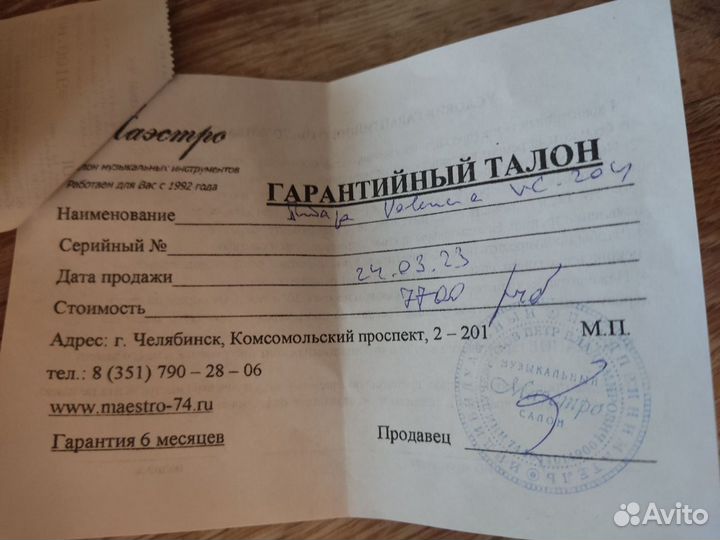 Маэстро
музыкальных инструментов
Работаем для Вас с 1992 года
ГАРАНТИЙНЫЙ ТАЛОН
Наименование Valencia VC-204
Серийный №
Дата продажи 24.03.23
Стоимость 7700 руб
Адрес: г. Челябинск, Комсомольский проспект, 2 – 201 М.П.
тел.: 8 (351) 790 – 28 – 06
www.maestro-74.ru
Гарантия 6 месяцев
Продавец
МУЗЫКАЛЬНЫЙ
Маэстро
САЛОН
Avito